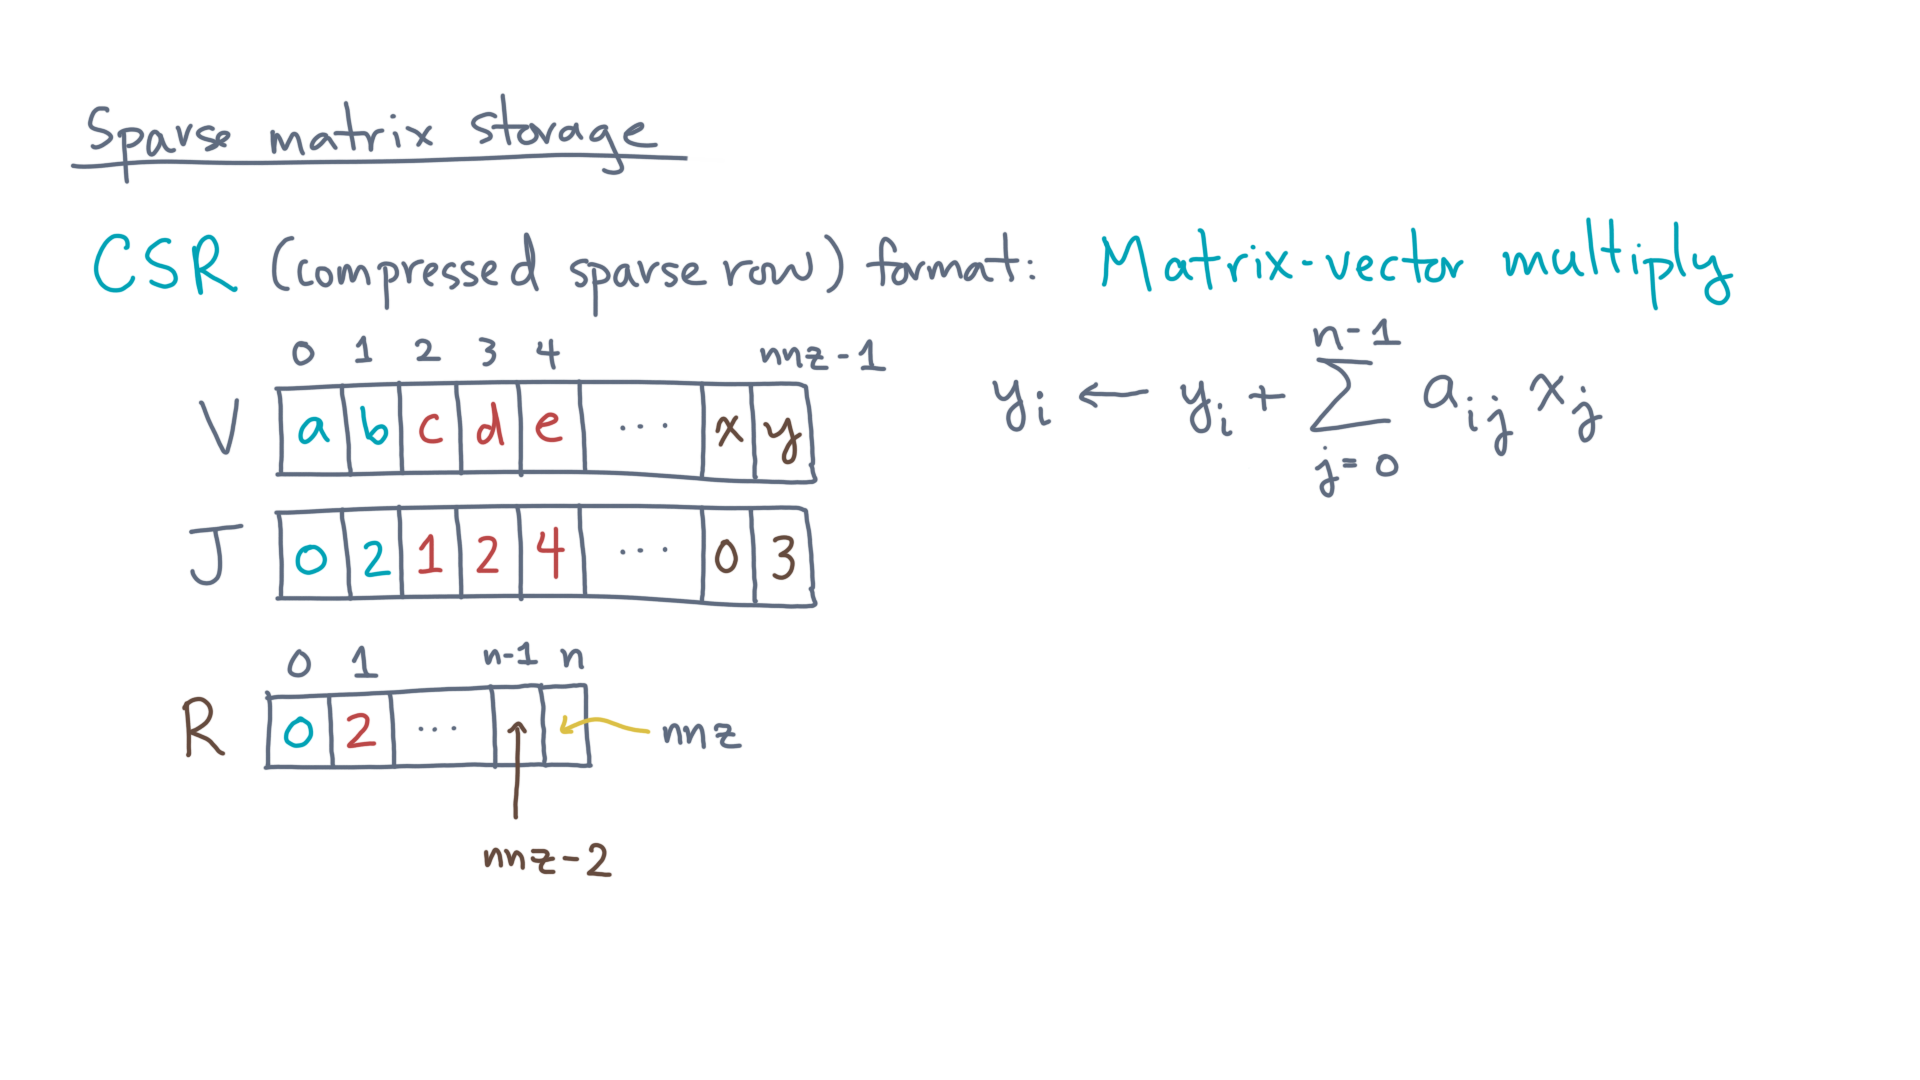 Sparse matrix storage
CSR (compressed sparse row) format: Matrix-vector multiply
0 1 2 3 4 nnz-1
V a b c d e ... x y
J 0 2 1 2 4 ... 0 3
0 1 n-1 n
R 0 2 ... nnz
nnz-2
n-1
y_i ← y_i + Σ a_ij x_j
j=0